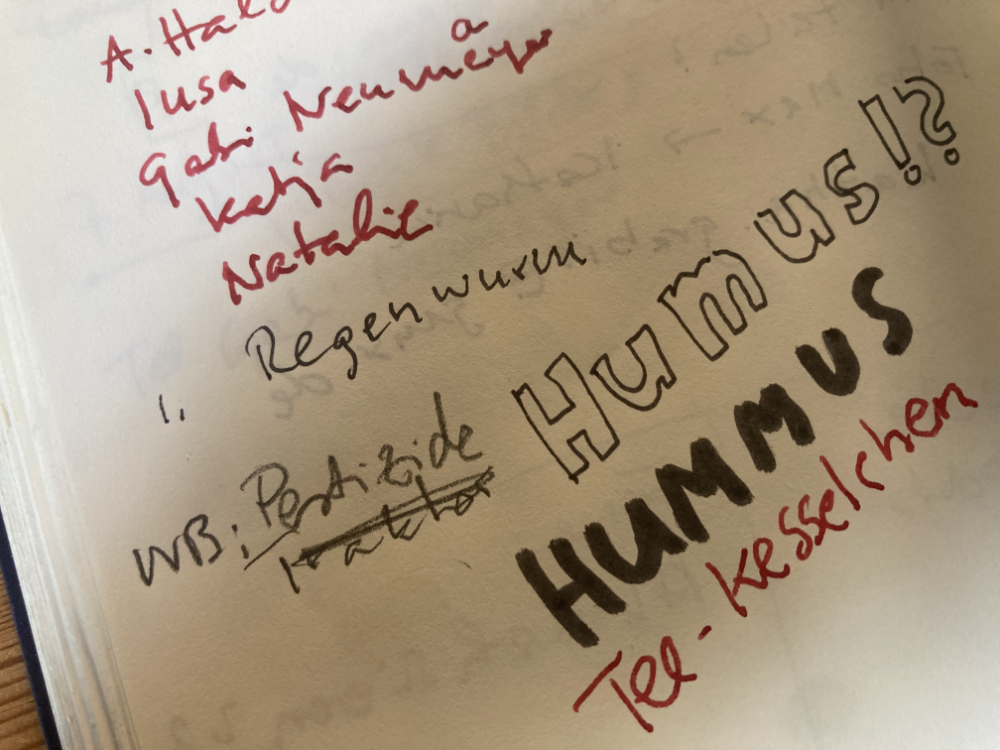 A. Hald
lusa
Gabi Neumeyer
a
Katja
Natalie
1. Regenwurm
Humus!?
HUMMUS
Tee-Kesselchen
WB: Pestizide
Traktor